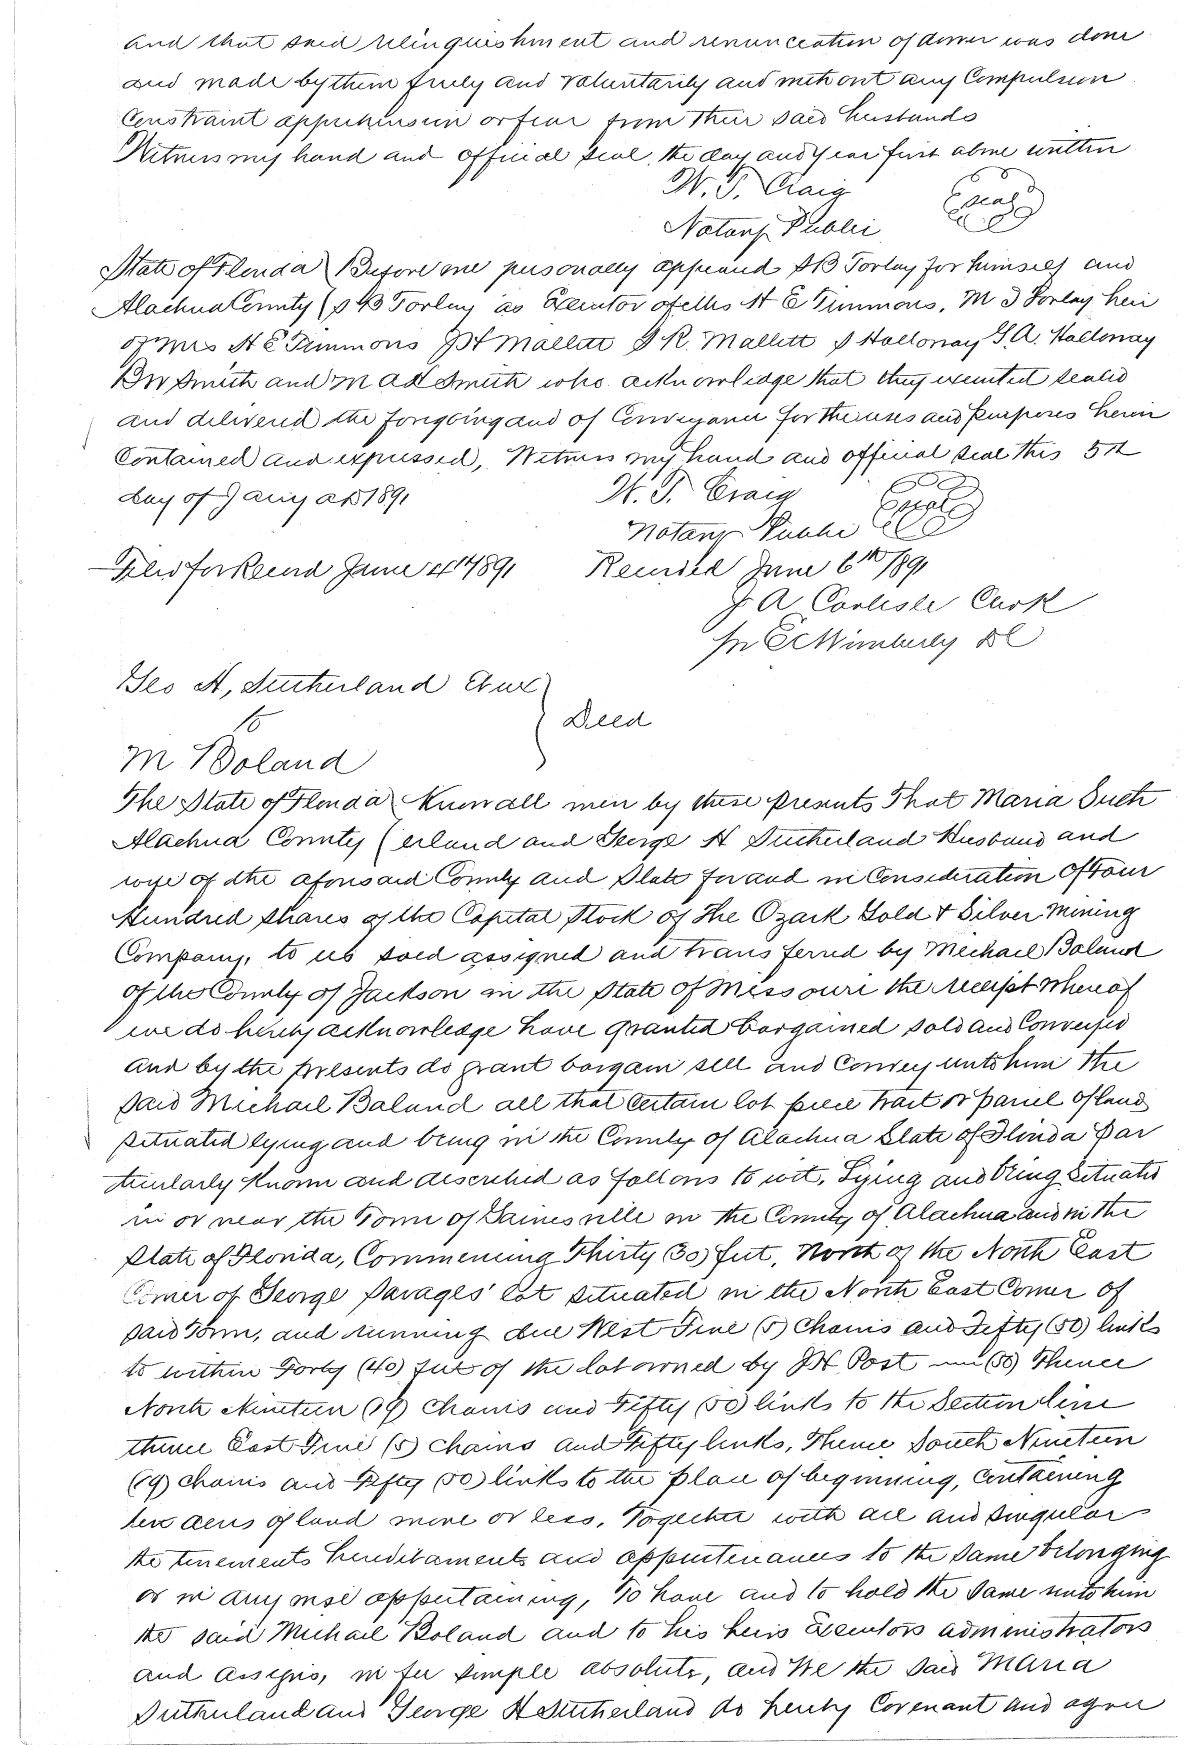 and that said relinquishment and renunciation of dower was done
and made by them freely and voluntarily and without any Compulsion
Constraint apprehension or fear from their said husbands
Witness my hand and official seal, the day and year first above written
W. T. Craig
Seal
Notary Public
State of Florida Before me personally appeared S B Torlay for himself and
Alachua County S B Torlay as Executor of Mrs H E Timmons, M J Torlay heir
of Mrs H E Timmons J H Mallett S R. Mallett S Holloway G. A. Holloway
B W Smith and M A E Smith who acknowledge that they executed sealed
and delivered the foregoing and of Conveyance for the uses and purposes herein
Contained and expressed, Witness my hand and official seal this 5th
day of Jany AD 1891
W. T. Craig
Seal
Notary Public
Filed for Record June 4th 1891 Recorded June 6th 1891
J A Carlisle Clerk
Pr E C Wimberly DC
Geo H, Sutherland Et ux
to
Deed
M Boland
The State of Florida Know all men by these presents That Maria Suth
Alachua County erland and George H Sutherland Husband and
wife of the aforesaid County and State for and in Consideration of Four
Hundred Shares of the Capital Stock of The Ozark Gold & Silver Mining
Company, to us sold assigned and transferred by Michael Boland
of the County of Jackson in the State of Missouri the receipt whereof
we do hereby acknowledge have granted bargained sold and Conveyed
and by the presents do grant bargain sell and Convey unto him the
said Michael Boland all that certain lot piece tract or parcel of land
situated lying and being in the County of Alachua State of Florida Par
ticularly known and described as follows to wit, Lying and being Situated
in or near the Town of Gainesville in the County of Alachua and in the
State of Florida, Commencing Thirty (30) feet, North of the North East
Corner of George Savages' lot situated in the North East Corner of
said Town, and running due West Five (5) Chains and Fifty (50) links
to within Forty (40) feet of the lot owned by J H Post (50) Thence
North Nineteen (19) Chains and Fifty (50) links to the Section line
thence East Five (5) Chains and Fifty links, Thence South Nineteen
(19) Chains and Fifty (50) links to the place of beginning, containing
ten acres of land more or less, Together with all and singular
the tenements hereditaments and appurtenances to the same belonging
or in any wise appertaining, To have and to hold the same unto him
the said Michael Boland and to his heirs Executors administrators
and assigns, in fee simple absolute, and We the said Maria
Sutherland and George H Sutherland do hereby Covenant and agree